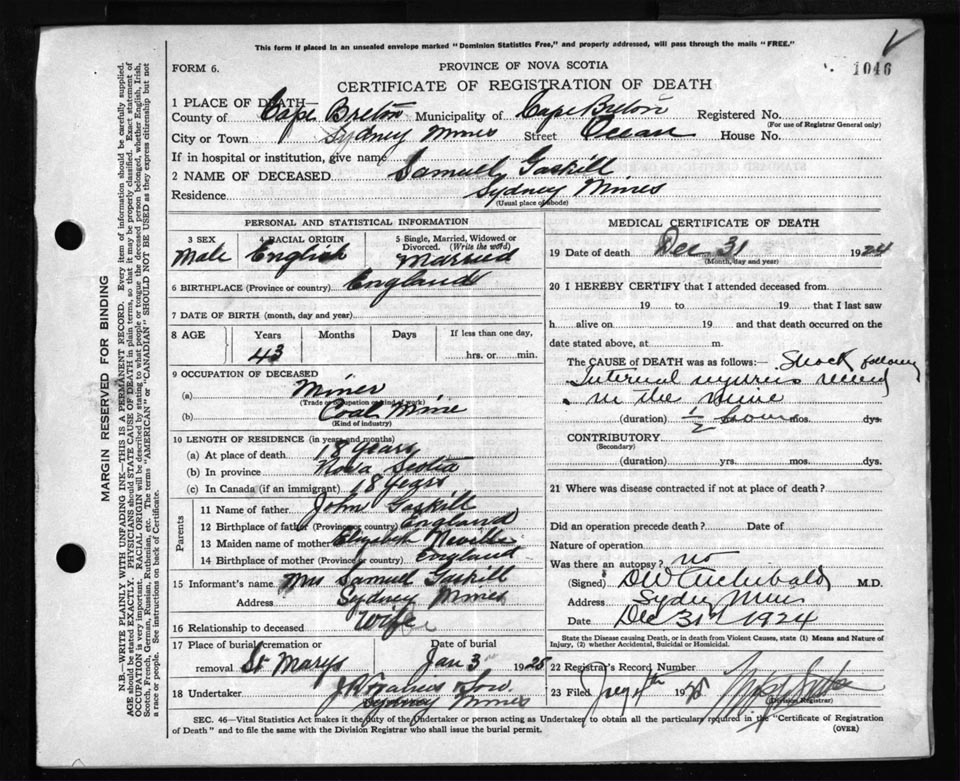 This form if placed in an unsealed envelope marked "Dominion Statistics Free," and properly addressed, will pass through the mails "FREE."
FORM 6.
PROVINCE OF NOVA SCOTIA
1046
CERTIFICATE OF REGISTRATION OF DEATH
1 PLACE OF DEATH
County of Cape Breton Municipality of Cape Breton Registered No.
(For use of Registrar General only)
City or Town Sydney Mines Street Ocean House No.
If in hospital or institution, give name
2 NAME OF DECEASED Samuel Gaskill
Residence Sydney Mines
(Usual place of abode)
PERSONAL AND STATISTICAL INFORMATION
3 SEX 4 RACIAL ORIGIN 5 Single, Married, Widowed or Divorced. (Write the word)
Male English Married
6 BIRTHPLACE (Province or country) England
7 DATE OF BIRTH (month, day and year)
8 AGE Years Months Days If less than one day,
43 hrs. or min.
9 OCCUPATION OF DECEASED
(a) Miner
(Trade or occupation or kind of work)
(b) Coal Mine
(Kind of industry)
10 LENGTH OF RESIDENCE (in years and months)
(a) At place of death 18 years
(b) In province Nova Scotia
(c) In Canada (if an immigrant) 18 years
Parents
11 Name of father John Gaskill
12 Birthplace of father (Province or country) England
13 Maiden name of mother Elizabeth Neville
14 Birthplace of mother (Province or country) England
15 Informant's name Mrs Samuel Gaskill
Address Sydney Mines
16 Relationship to deceased Wife
17 Place of burial, cremation or removal St Marys
Date of burial Jan 3 1925
18 Undertaker
Sydney Mines
MEDICAL CERTIFICATE OF DEATH
19 Date of death Dec 31 1924
(Month, day and year)
20 I HEREBY CERTIFY that I attended deceased from
19 to 19 that I last saw
h alive on 19 and that death occurred on the
date stated above, at m.
The CAUSE of DEATH was as follows: Shock following
Internal injuries received
in the mine
(duration) 1/2 hour mos. dys.
CONTRIBUTORY
(Secondary)
(duration) yrs. mos. dys.
21 Where was disease contracted if not at place of death?
Did an operation precede death? Date of
Nature of operation
Was there an autopsy? no
(Signed) DW Archibald M.D.
Address Sydney Mines
Date Dec 31st 1924
State the Disease causing Death, or in death from Violent Causes, state (1) Means and Nature of Injury, (2) whether Accidental, Suicidal or Homicidal.
22 Registrar's Record Number
23 Filed
(Division Registrar)
SEC. 46—Vital Statistics Act makes it the duty of the Undertaker or person acting as Undertaker to obtain all the particulars required in the "Certificate of Registration
of Death" and to file the same with the Division Registrar who shall issue the burial permit.
(OVER)
MARGIN RESERVED FOR BINDING
N.B.—WRITE PLAINLY WITH UNFADING INK—THIS IS A PERMANENT RECORD. Every item of information should be carefully supplied.
AGE should be stated EXACTLY. PHYSICIANS should STATE CAUSE OF DEATH in plain terms, so that it may be properly classified. Exact statement of
OCCUPATION is very important. RACIAL ORIGIN will be described by stating to what people or tongue the deceased person belonged, whether English, Irish,
Scotch, French, German, Russian, Ruthenian, etc. The terms "AMERICAN" or "CANADIAN" SHOULD NOT BE USED as they express citizenship but not
a race or people. See instructions on back of Certificate.